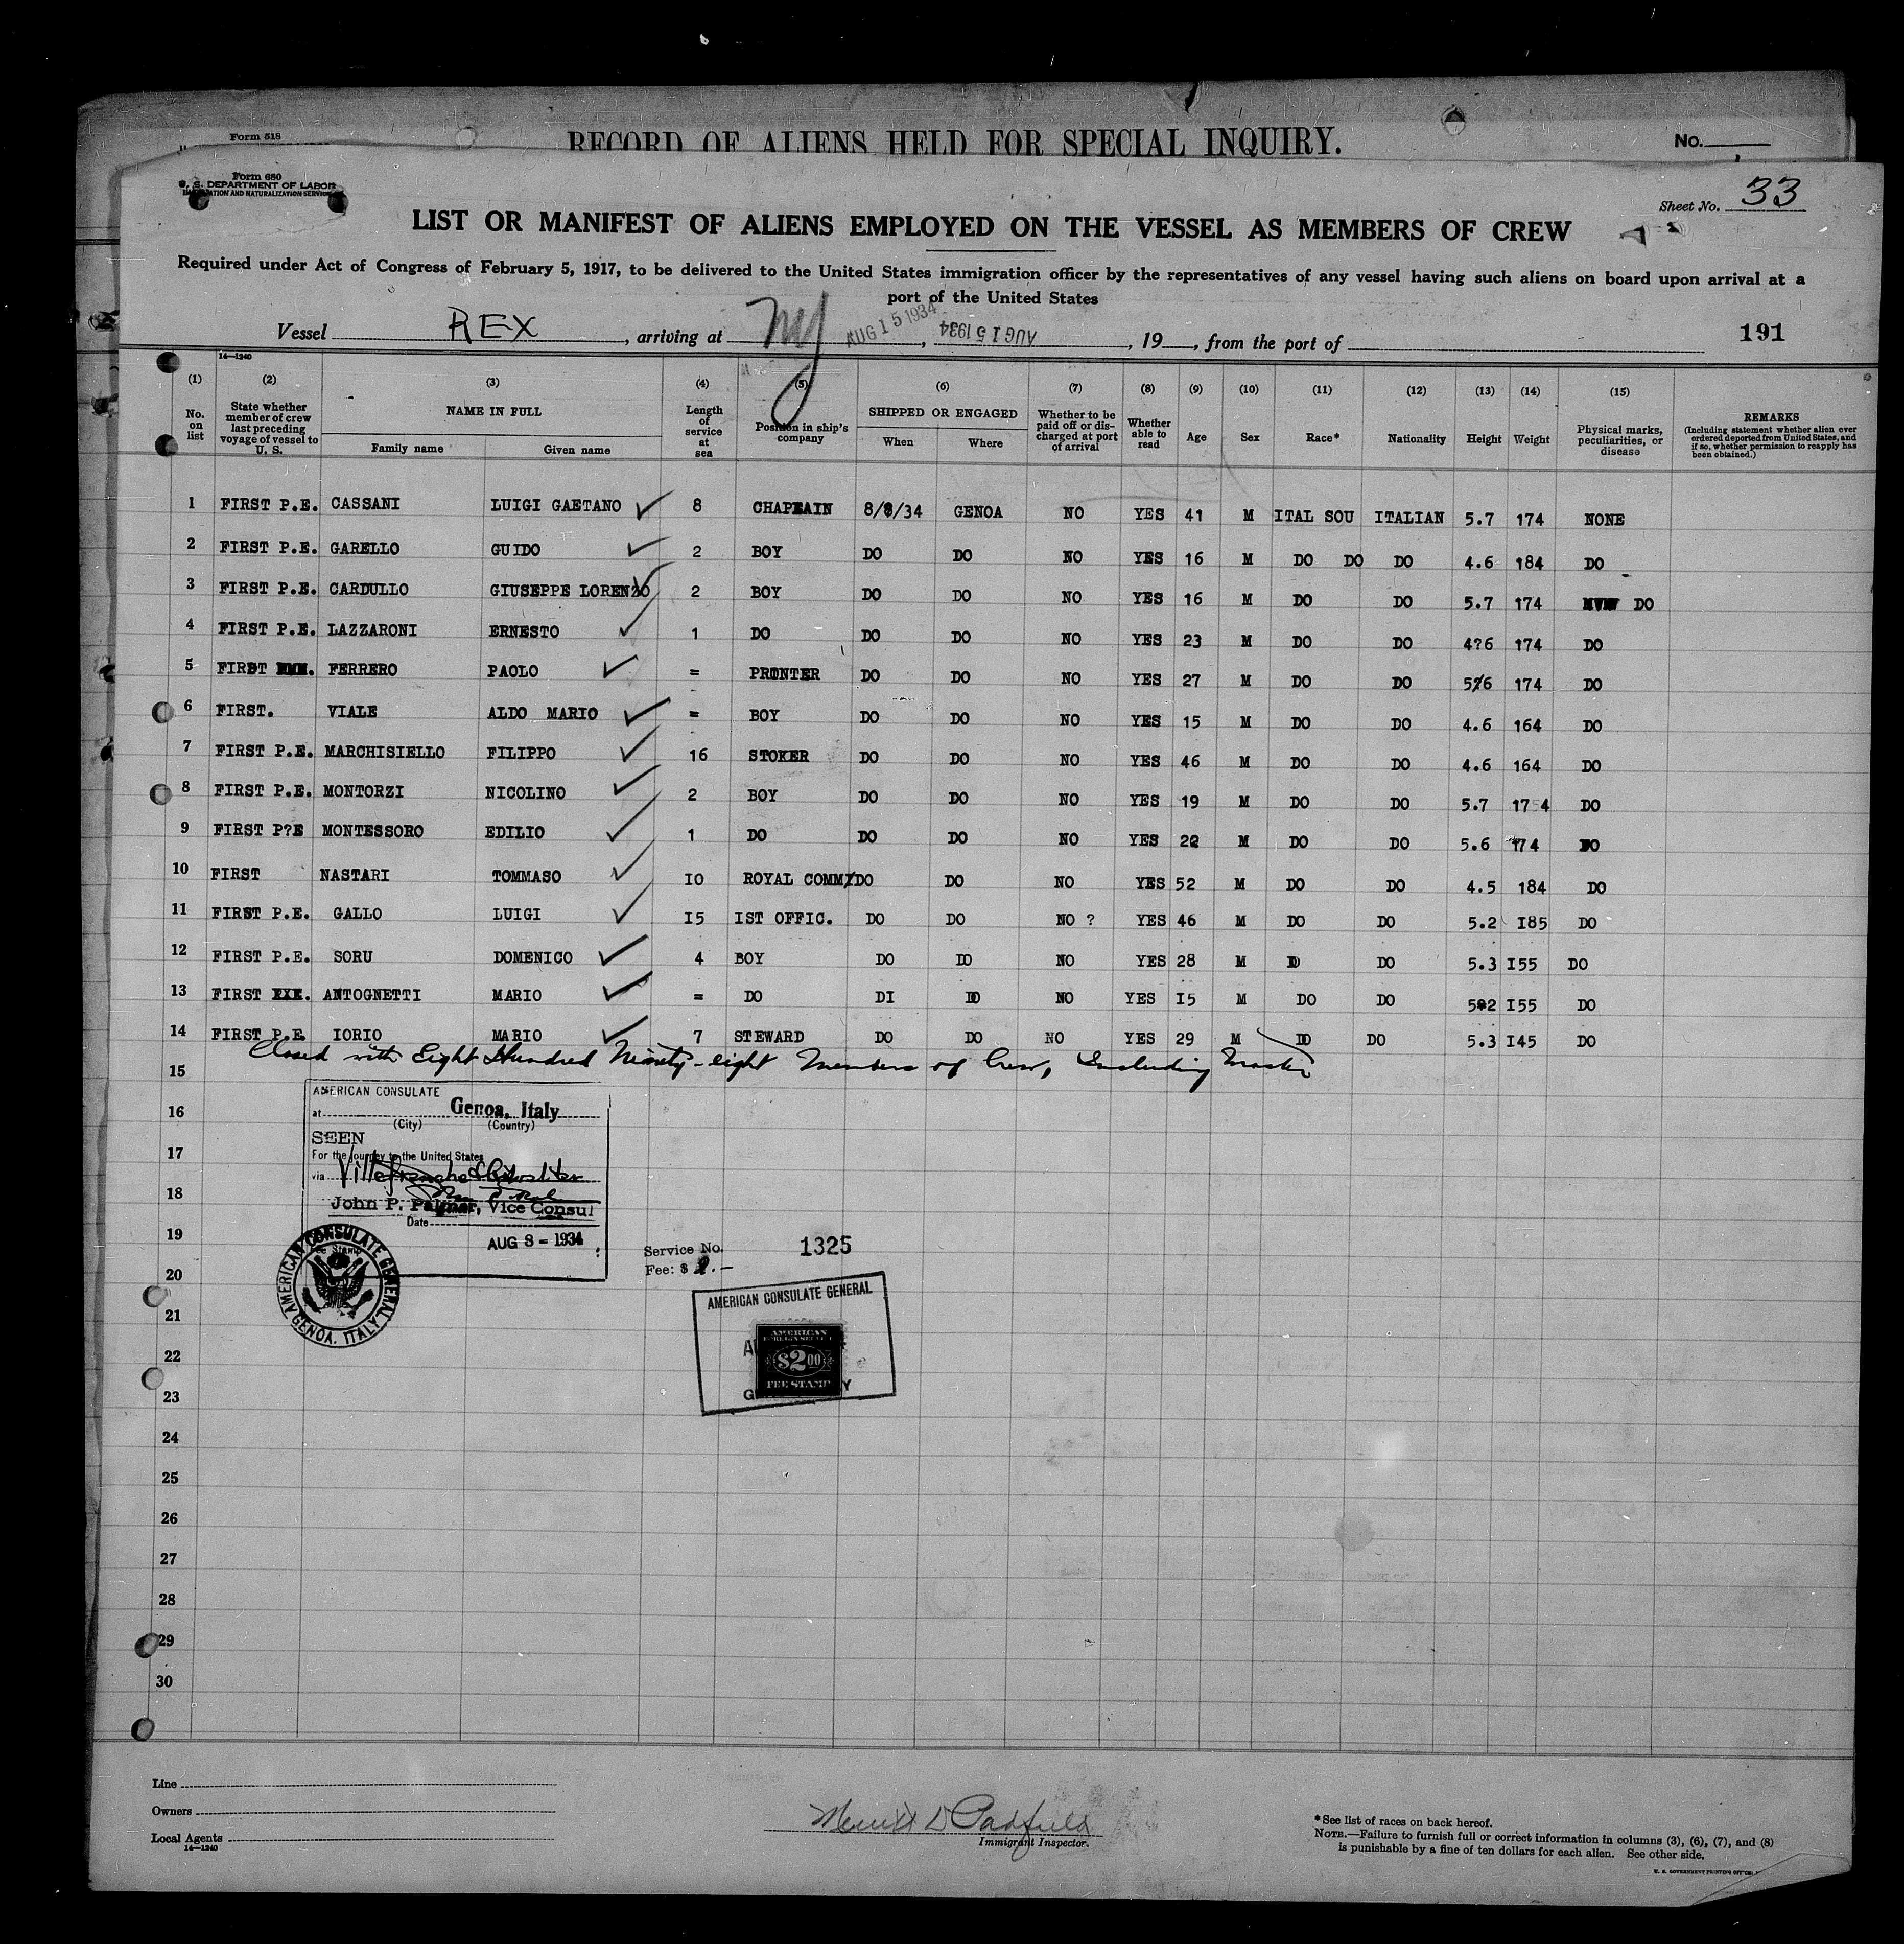 Form 518
RECORD OF ALIENS HELD FOR SPECIAL INQUIRY.
No.
Form 680
U. S. DEPARTMENT OF LABOR
IMMIGRATION AND NATURALIZATION SERVICE
Sheet No. 33
LIST OR MANIFEST OF ALIENS EMPLOYED ON THE VESSEL AS MEMBERS OF CREW
Required under Act of Congress of February 5, 1917, to be delivered to the United States immigration officer by the representatives of any vessel having such aliens on board upon arrival at a
port of the United States
Vessel REX, arriving at NY AUG 15 1934, AUG 15 1934, 19 , from the port of
191
14—1240
(1) (2) (3) (4) (5) (6) (7) (8) (9) (10) (11) (12) (13) (14) (15)
No. on list
State whether member of crew last preceding voyage of vessel to U. S.
NAME IN FULL
Family name Given name
Length of service at sea
Position in ship's company
SHIPPED OR ENGAGED
When Where
Whether to be paid off or discharged at port of arrival
Whether able to read
Age Sex Race* Nationality Height Weight
Physical marks, peculiarities, or disease
REMARKS
(Including statement whether alien ever ordered deported from United States, and if so, whether permission to reapply has been obtained.)
1 FIRST P.E. CASSANI LUIGI GAETANO 8 CHAPLAIN 8/8/34 GENOA NO YES 41 M ITAL SOU ITALIAN 5.7 174 NONE
2 FIRST P.E. GARELLO GUIDO 2 BOY DO DO NO YES 16 M DO DO DO 4.6 184 DO
3 FIRST P.E. CARDULLO GIUSEPPE LORENZO 2 BOY DO DO NO YES 16 M DO DO 5.7 174 DO
4 FIRST P.E. LAZZARONI ERNESTO 1 DO DO DO NO YES 23 M DO DO 4?6 174 DO
5 FIRST FERRERO PAOLO = PRINTER DO DO NO YES 27 M DO DO 5/6 174 DO
6 FIRST. VIALE ALDO MARIO = BOY DO DO NO YES 15 M DO DO 4.6 164 DO
7 FIRST P.E. MARCHISIELLO FILIPPO 16 STOKER DO DO NO YES 46 M DO DO 4.6 164 DO
8 FIRST P.E. MONTORZI NICOLINO 2 BOY DO DO NO YES 19 M DO DO 5.7 174 DO
9 FIRST P?E MONTESSORO EDILIO 1 DO DO DO NO YES 22 M DO DO 5.6 174 DO
10 FIRST NASTARI TOMMASO IO ROYAL COMM/DO DO NO YES 52 M DO DO 4.5 184 DO
11 FIRST P.E. GALLO LUIGI I5 IST OFFIC. DO DO NO ? YES 46 M DO DO 5.2 I85 DO
12 FIRST P.E. SORU DOMENICO 4 BOY DO DO NO YES 28 M DO DO 5.3 I55 DO
13 FIRST ANTOGNETTI MARIO = DO DI DO NO YES I5 M DO DO 5.2 I55 DO
14 FIRST P.E. IORIO MARIO 7 STEWARD DO DO NO YES 29 M DO DO 5.3 I45 DO
Closed with Eight Hundred Ninety-eight Members of Crew, Including Master
15
16
17
18
19
20
21
22
23
24
25
26
27
28
29
30
AMERICAN CONSULATE
at Genoa, Italy
(City) (Country)
SEEN
For the journey to the United States
via Villefranche & Gibralter
John P. Palmer, Vice Consul
Date
AUG 8 - 1934
Fee Stamp
AMERICAN CONSULATE GENERAL
GENOA, ITALY
Service No. 1325
Fee: $ 2.—
AMERICAN CONSULATE GENERAL
AMERICAN
FOREIGN SERVICE
$2.00
FEE STAMP
Line
Owners
Local Agents
14—1240
Merritt D Padfield
Immigrant Inspector.
*See list of races on back hereof.
NOTE.—Failure to furnish full or correct information in columns (3), (6), (7), and (8)
is punishable by a fine of ten dollars for each alien. See other side.
U. S. GOVERNMENT PRINTING OFFICE